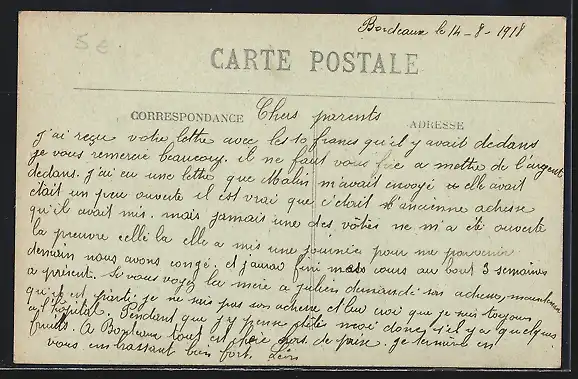 Bordeaux le 14-8-1918
5 €.
CARTE POSTALE
CORRESPONDANCE
Chers parents
ADRESSE
J'ai reçu votre lettre avec les 10 francs qu'il y avait dedans
je vous remercie beaucoup. il ne faut vous fier a mettre de l'argent
dedans. J'ai eu une lettre que Malin m'avait envoyé elle avait
était un peu ouverte il est vrai que c'était l'ancienne adresse
qu'il avait mis. mais jamais une des vôtres ne m'a été ouverte
la preuve celle la elle a mis une journée pour me parvenir
demain nous avons congé. et j'aurai fini mes cours au bout 3 semaines
a présent. Si vous voyez la mère a julien demandé son adresse, maintenant
qu'il est parti je ne sais pas son adresse et lui croi que je suis toujours
a l'hôpital. Pendant que j'y pense dites moi donc s'il y a quelques
fruits. A Bordeaux tout est hors de prix. je termine en
vous embrassant bien fort. Léon